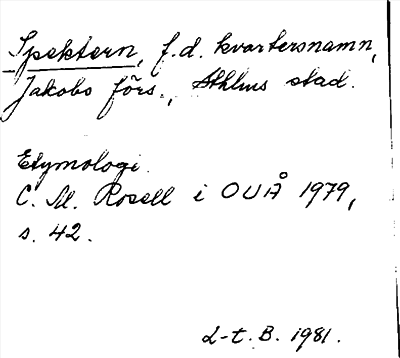 Spektern, f.d. kvartersnamn,
Jakobs förs., Sthlms stad.
Etymologi.
C. M. Rosell i OUÅ 1979,
s. 42.
L-t. B. 1981.